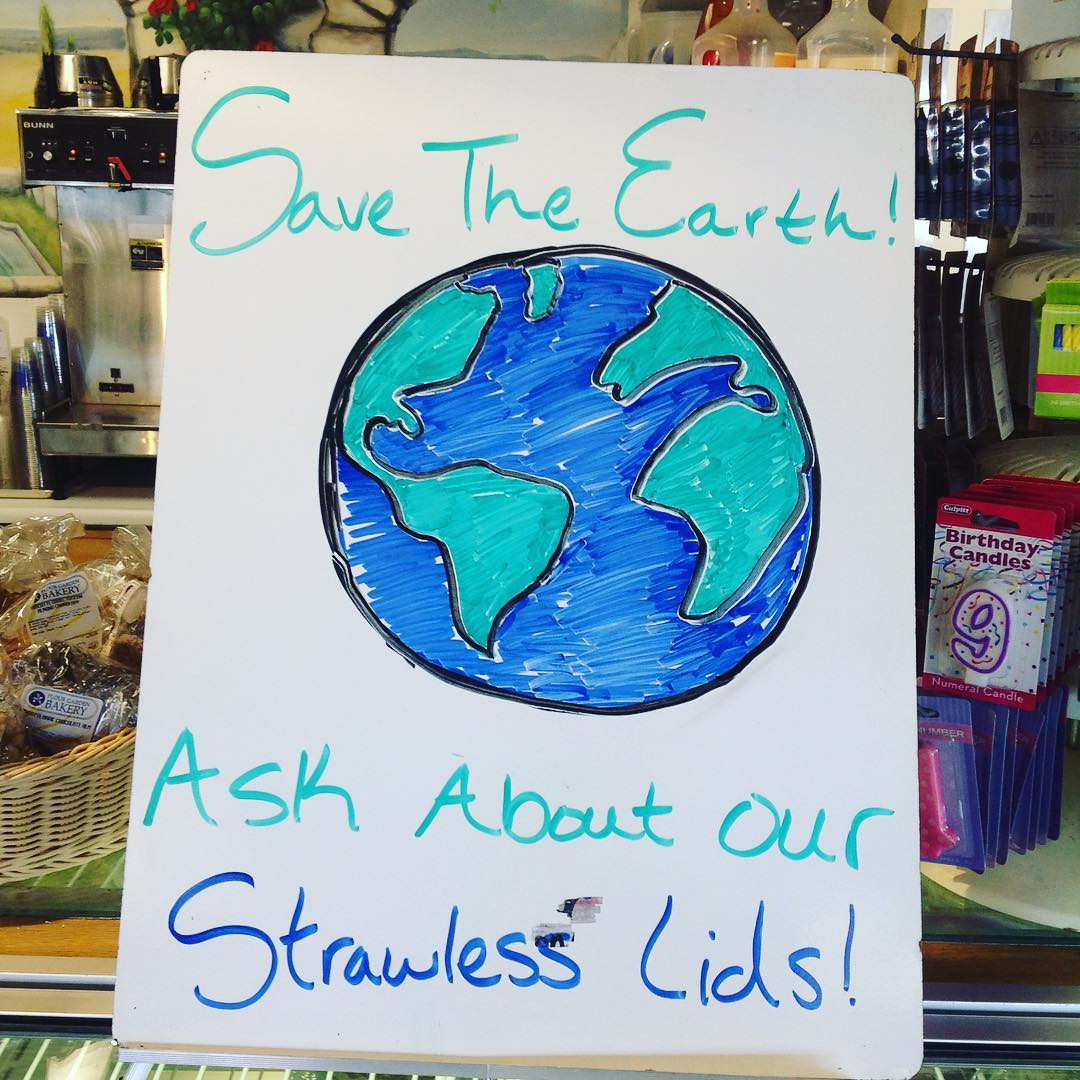 Save The Earth!
Ask About our
Strawless Lids!
BUNN
BAKERY
FLOUR GARDEN
BAKERY
Culpitt
Birthday
Candles
9
Numeral Candle
NUMBER